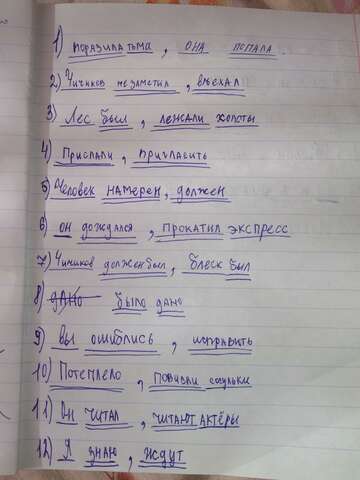 1) поразила тьма, она попала.
2) Чичиков не заметил, въехал
3) Лес был, лежали холсты
4) Прислали, пригласить
5) Человек намерен, должен
6) он дождался, прокатил экспресс
7) Чичиков должен был, блеск был
8) дано было дано
9) вы ошиблись, исправить
10) Потеплело, повисли сосульки
11) Он читал, читают актёры
12) Я знаю, ждут